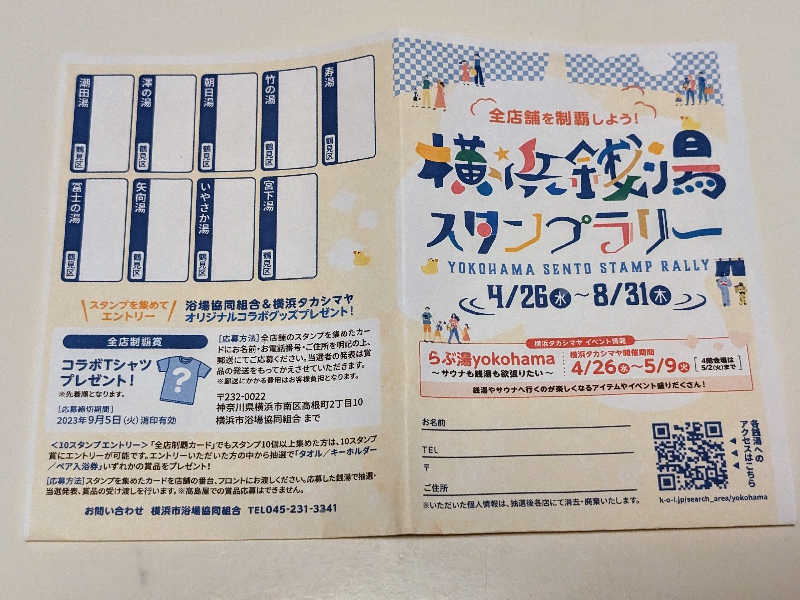 潮田湯
鶴見区
澤の湯
鶴見区
朝日湯
鶴見区
竹の湯
鶴見区
寿湯
鶴見区
富士の湯
鶴見区
矢向湯
鶴見区
いやさか湯
鶴見区
宮下湯
鶴見区
スタンプを集めて
エントリー
浴場協同組合&横浜タカシマヤ
オリジナルコラボグッズプレゼント!
全店制覇賞
コラボTシャツ
プレゼント!
※先着順となります。
?
[応募締切期間]
2023年9月5日(火)消印有効
[応募方法]全店舗のスタンプを集めたカー
ドにお名前・お電話番号・ご住所を明記の上、
郵送にてご応募ください。当選者の発表は賞
品の発送をもってかえさせていただきます。
※郵送にかかる費用はお客様負担となります。
〒232-0022
神奈川県横浜市南区高根町2丁目10
横浜市浴場協同組合 まで
<10スタンプエントリー>「全店制覇カード」でもスタンプ10個以上集めた方は、10スタンプ
賞にエントリーが可能です。エントリーいただいた方の中から抽選で「タオル/キーホルダー
/ペア入浴券」いずれかの賞品をプレゼント!
[応募方法]スタンプを集めたカードを店舗の番台、フロントにお渡しください。応募した銭湯で抽選・
当選発表、賞品の受け渡しを行います。※高島屋での賞品応募はできません。
お問い合わせ 横浜市浴場協同組合 TEL045-231-3341
全店舗を制覇しよう!
横浜銭湯
スタンプラリー
YOKOHAMA SENTO STAMP RALLY
4/26水~8/31木
横浜タカシマヤ イベント情報
らぶ湯yokohama
~サウナも銭湯も欲張りたい~
横浜タカシマヤ開催期間
4/26水~5/9火
4階会場は
5/2(火)まで
銭湯やサウナへ行くのが楽しくなるアイテムやイベント盛りだくさん!
お名前
TEL
〒
ご住所
※いただいた個人情報は、抽選後各店にて消去・廃棄いたします。
各銭湯への
アクセスはこちら
k-o-i.jp/search_area/yokohama